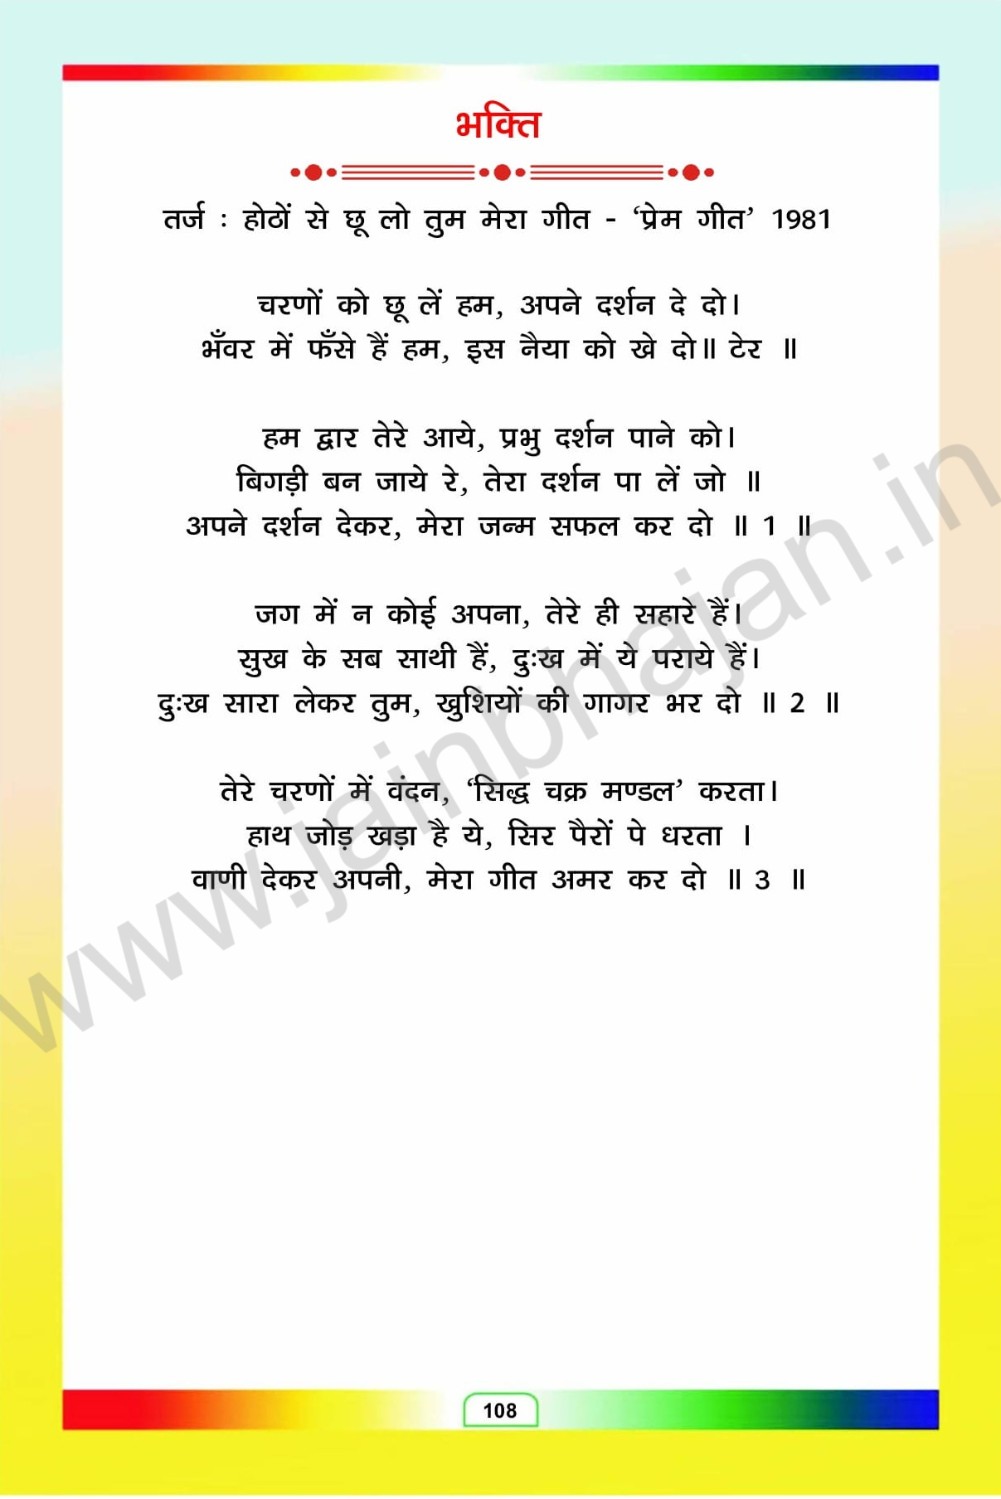 भक्ति
तर्ज : होठों से छू लो तुम मेरा गीत - ‘प्रेम गीत’ 1981
चरणों को छू लें हम, अपने दर्शन दे दो।
भँवर में फँसे हैं हम, इस नैया को खे दो॥ टेर ॥
हम द्वार तेरे आये, प्रभु दर्शन पाने को।
बिगड़ी बन जाये रे, तेरा दर्शन पा लें जो ॥
अपने दर्शन देकर, मेरा जन्म सफल कर दो ॥ 1 ॥
जग में न कोई अपना, तेरे ही सहारे हैं।
सुख के सब साथी हैं, दुःख में ये पराये हैं।
दुःख सारा लेकर तुम, खुशियों की गागर भर दो ॥ 2 ॥
तेरे चरणों में वंदन, ‘सिद्ध चक्र मण्डल’ करता।
हाथ जोड़ खड़ा है ये, सिर पैरों पे धरता ।
वाणी देकर अपनी, मेरा गीत अमर कर दो ॥ 3 ॥
www.jainbhajan.in
108